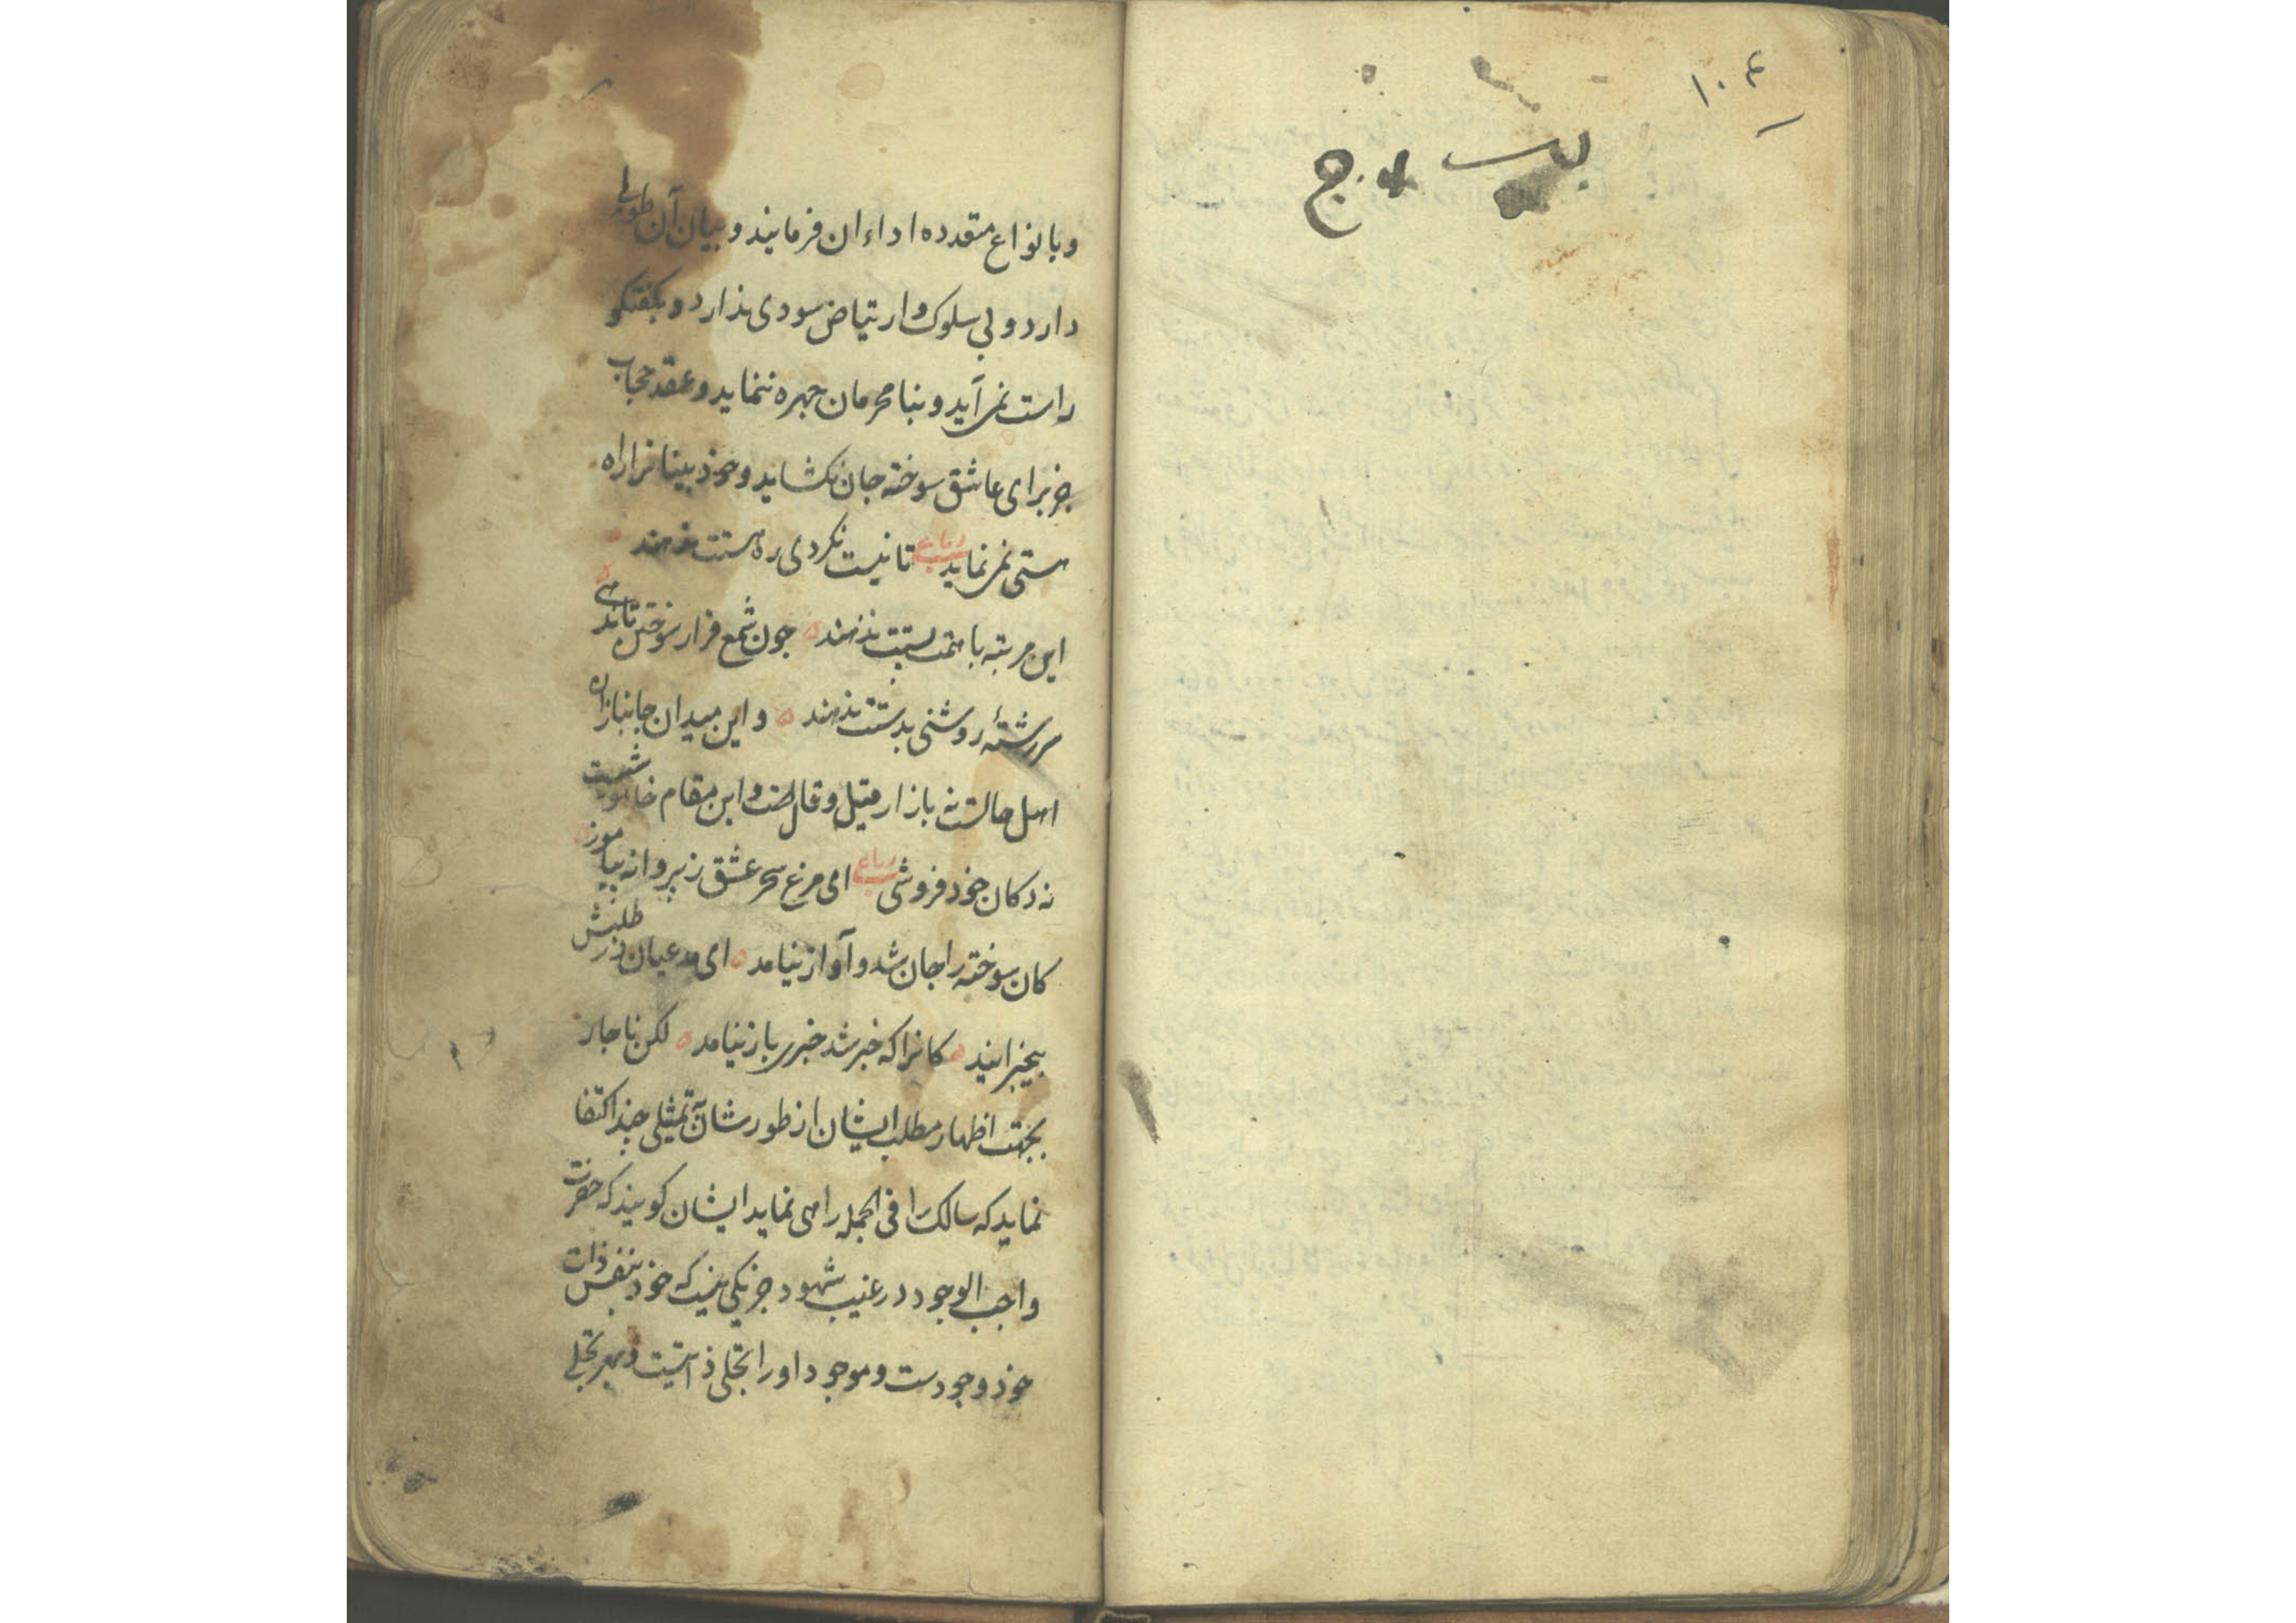 ۱۰۴
وبانواع متعدده اداء ان فرمایند و بیان آن طولی
دارد و بی سلوک و ارتیاض سودی ندارد و بکفتکو
راست نمی آید و بنا محرمان جهره ننماید و عقد حجاب
جز برای عاشق سوخته جان نکشاید و خود بینانرا راه
هستی نمی نماید رباعی تا نیست نکردی ره هستت ندهند
این مرتبه با همت پستت ندهند جون شمع قرار سوختن تا ندهی
سر رشتهٔ روشنی بدستت ندهند و این میدان جانبازان
اهل حالست نه بازار قیل و قال است و این مقام خاموشیست
نه دکان خود فروشی رباعی ای مرغ سحر عشق ز پروانه بیاموز
کان سوخته را جان شد و آواز نیامد ای مدعیان در طلبش
بیخبرانند کانرا که خبر شد خبری باز نیامد لکن ناجار
بجهت اظهار مطلب ایشان از طور شان تمثیلی جند اکتفا
نماید که سالک را فی الجمله راهی نماید ایشان کویند که حضرت
واجب الوجود در غیب شهود جز یکی نیست که خود بنفس ذات
خود وجودست و موجود او را تجلی ذاتیست و بهر تجلی